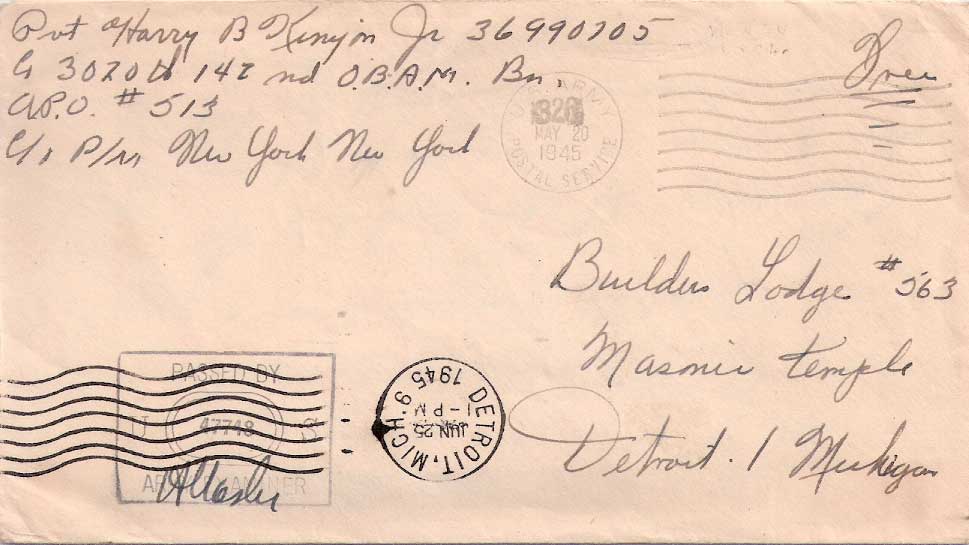 Pvt Harry B Kenyon Jr 36990705
Co 3020th 142 nd O.B.A.M. Bn,
A.P.O. # 513
C/o P/m New York New York
Free
U.S. ARMY
328
MAY 20
1945
POSTAL SERVICE
Builders Lodge #563
Masonic Temple
Detroit. 1 Michigan
PASSED BY
U 47748 S
ARMY EXAMINER
DETROIT, MICH. 9
JUN 25
1 - PM
1945